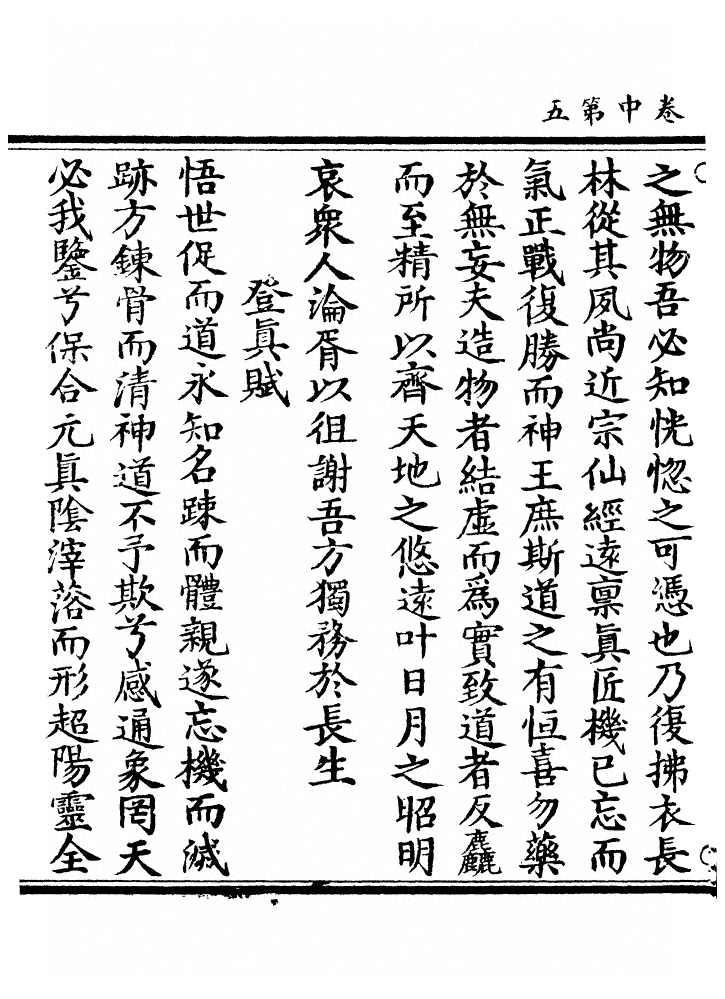 卷中第五
之無物吾必知恍惚之可憑也乃復拂衣長
林從其夙尚近宗仙經遠稟眞匠機已忘而
氣正戰復勝而神王庶斯道之有恒喜勿藥
於無妄夫造物者結虛而爲實致道者反麤
而至精所以齊天地之悠遠叶日月之昭明
哀衆人論胥以徂謝吾方獨務於長生
登眞賦
悟世促而道永知名踈而體親遂忘機而滅
跡方鍊骨而清神道不予欺兮感通象罔天
必我鑒兮保合元眞陰滓落而形超陽靈全